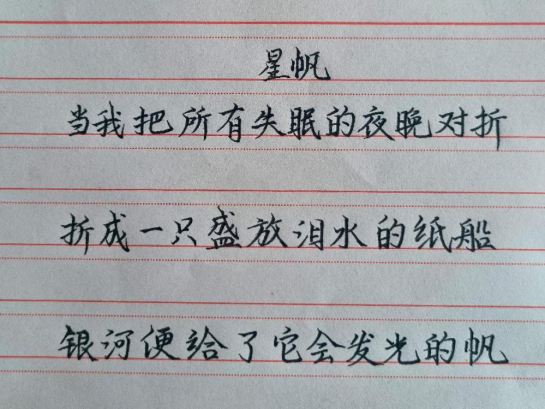 星帆
当我把所有失眠的夜晚对折
折成一只盛放泪水的纸船
银河便给了它会发光的帆